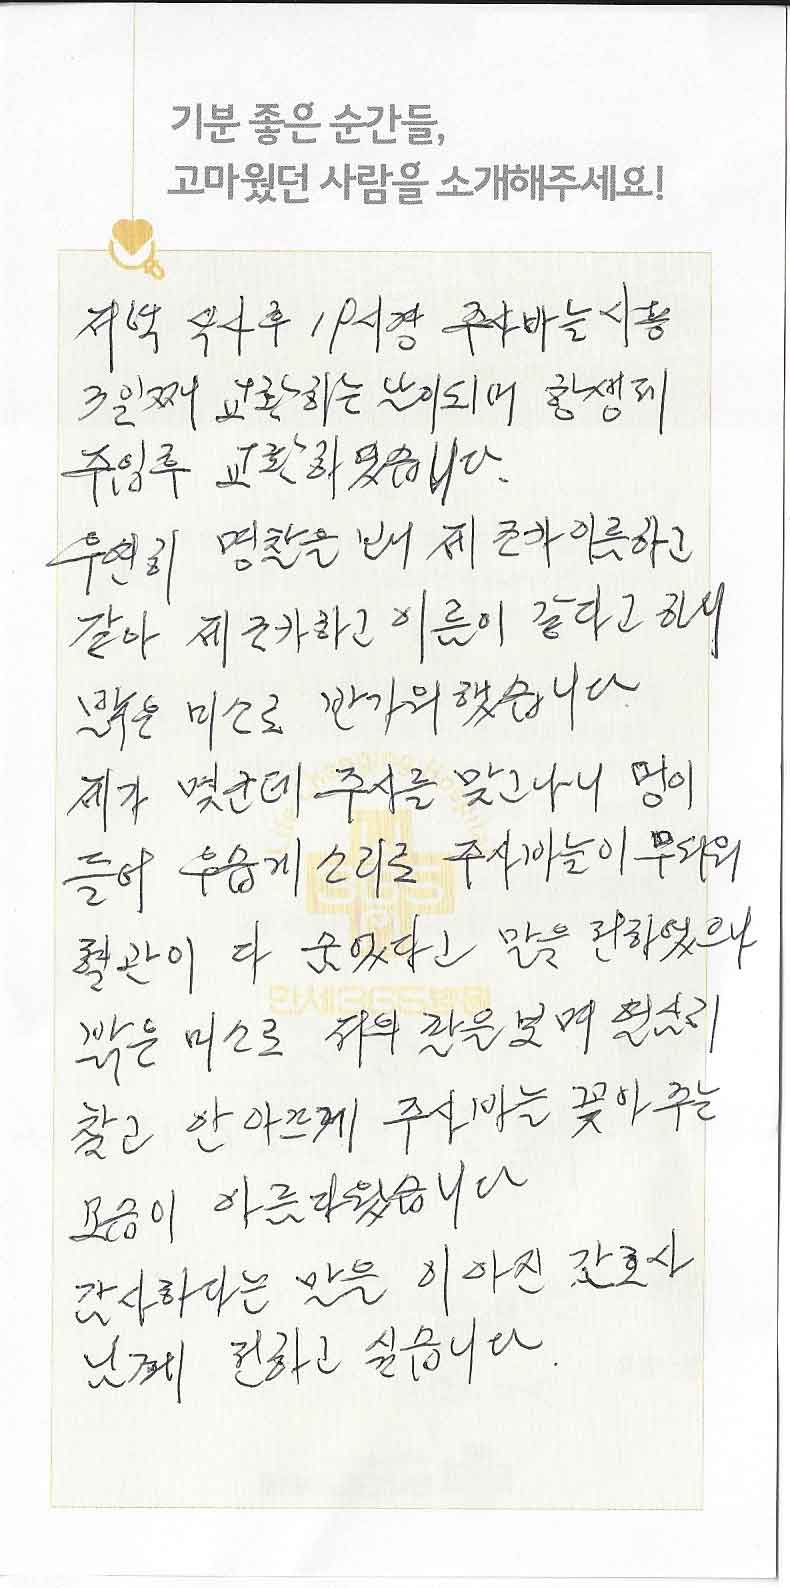 기분 좋은 순간들,
고마웠던 사람을 소개해주세요!
저녁 식사후 19시경 주사바늘 시황
3일째 교환하는 날이되며 항생제
주입후 교환하였습니다.
우연히 명찰을 보니 제 조카 이름하고
같아 제 조카하고 이름이 같다고 하니
밝은 미소로 반가워 했습니다.
제가 몇군데 주사를 맞고나니 멍이
들어 우습게 소리로 주사바늘이 무서워
혈관이 다 숨었다고 말을 전하였으나
밝은 미소로 저의 팔을 보며 열심히
찾고 안 아프게 주사바늘 꽂아 주는
모습이 아름다웠습니다
감사하다는 말을 이아진 간호사
님께 전하고 싶습니다.